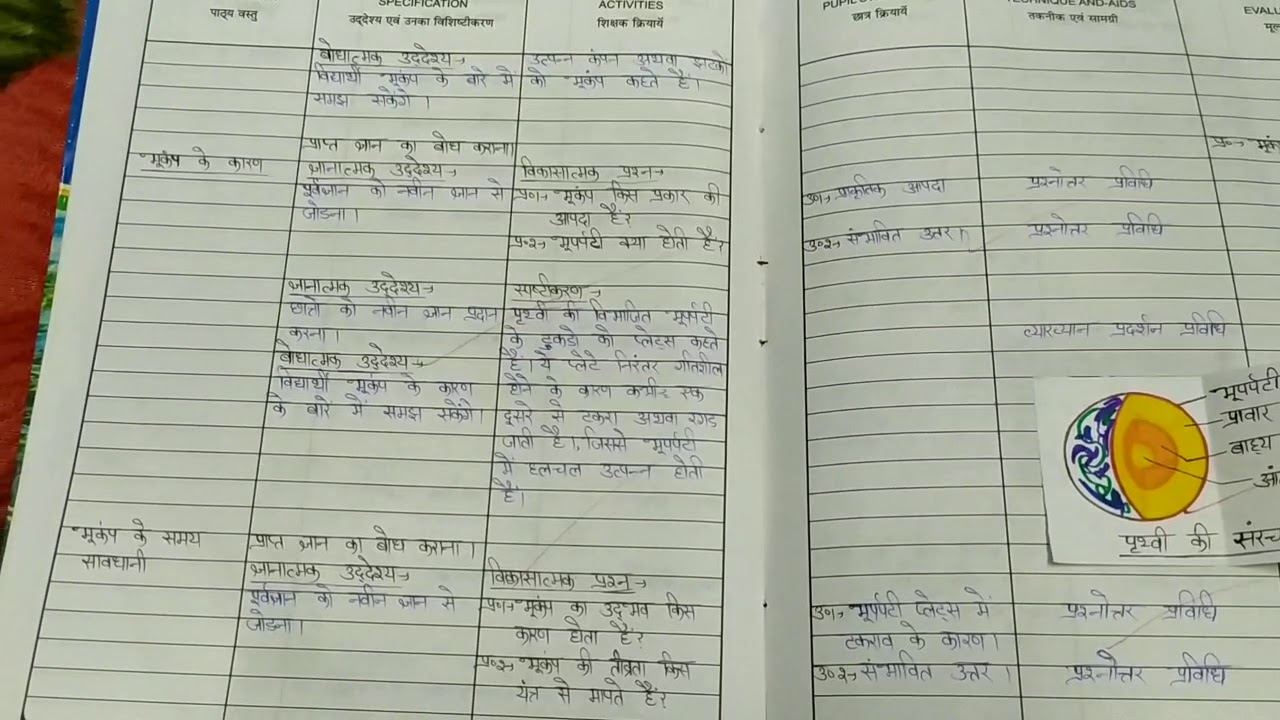 SPECIFICATION
ACTIVITIES
TECHNIQUE AND-AIDS
पाठ्य वस्तु
उद्देश्य एवं उनका विशिष्टीकरण
शिक्षक क्रियायें
छात्र क्रियायें
तकनीक एवं सामग्री
बोधात्मक उद्देश्य→
विद्यार्थी भूकंप के बारे में
समझ सकेंगे ।
उत्पन्न कंपन अथवा झटको
को भूकंप कहते है।
प्राप्त ज्ञान का बोध कराना।
भूकंप के कारण
ज्ञानात्मक उद्देश्य→
पूर्वज्ञान को नवीन ज्ञान से
जोडना ।
विकासात्मक प्रश्न→
प्र०1→ भूकंप किस प्रकार की
आपदा हैं?
प्र०2→ भूपर्पटी क्या होती है?
उ०1→ प्राकृतिक आपदा
प्रश्नोतर प्रविधि
उ०2→ संभावित उत्तर।
प्रश्नोतर प्रविधि
ज्ञानात्मक उद्देश्य→
छात्रो को नवीन ज्ञान प्रदान
करना ।
बोधात्मक उद्देश्य→
विद्यार्थी भूकंप के कारण
के बारे में समझ सकेंगे।
स्पष्टीकरण→
पृथ्वी की विभाजित भूपर्पटी
के टुकडो को प्लेट्स कहते
हैं। ये प्लेटे निरंतर गतिशील
होने के कारण कभी२ एक
दूसरे से टकरा अथवा रगड
जाती है।, जिससे भूपर्पटी
में हलचल उत्पन्न होती
हैं।
व्याख्यान प्रदर्शन प्रविधि
भूपर्पटी
प्रावार
बाह्य
पृथ्वी की
भूकंप के समय
सावधानी
प्राप्त ज्ञान का बोध कराना ।
ज्ञानात्मक उद्देश्य→
पूर्वज्ञान को नवीन ज्ञान से
जोडना ।
विकासात्मक प्रश्न→
प्र०1→ भूकंप का उद्भव किस
कारण होता हैं?
प्र०2→ भूकंप की तीव्रता किस
यंत्र से मापते हैं?
उ०1→ भूपर्पटी प्लेट्स में
टकराव के कारण।
प्रश्नोत्तर प्रविधि
उ०2→ संभावित उत्तर ।
प्रश्नोत्तर प्रविधि